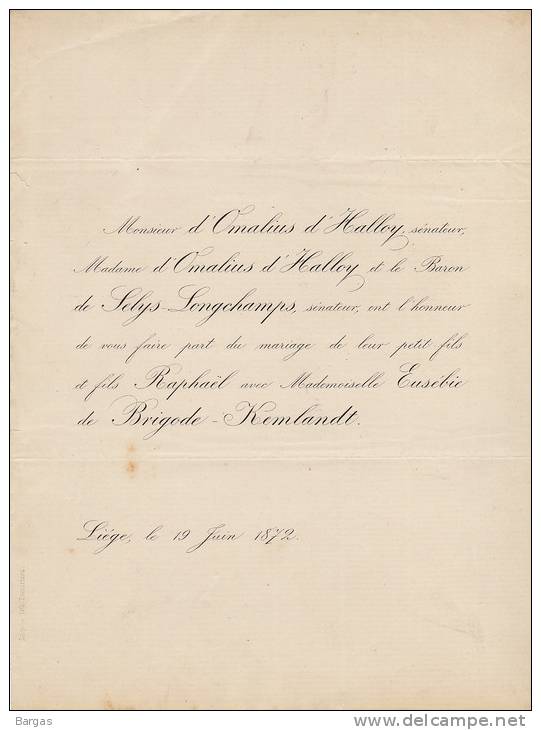 Monsieur d'Omalius d'Halloy, sénateur,
Madame d'Omalius d'Halloy et le Baron
de Selys-Longchamps, sénateur, ont l'honneur
de vous faire part du mariage de leur petit fils
et fils Raphaël avec Mademoiselle Eusébie
de Brigode-Kemlandt.
Liége, le 19 Juin 1872.
Bargas
www.delcampe.net